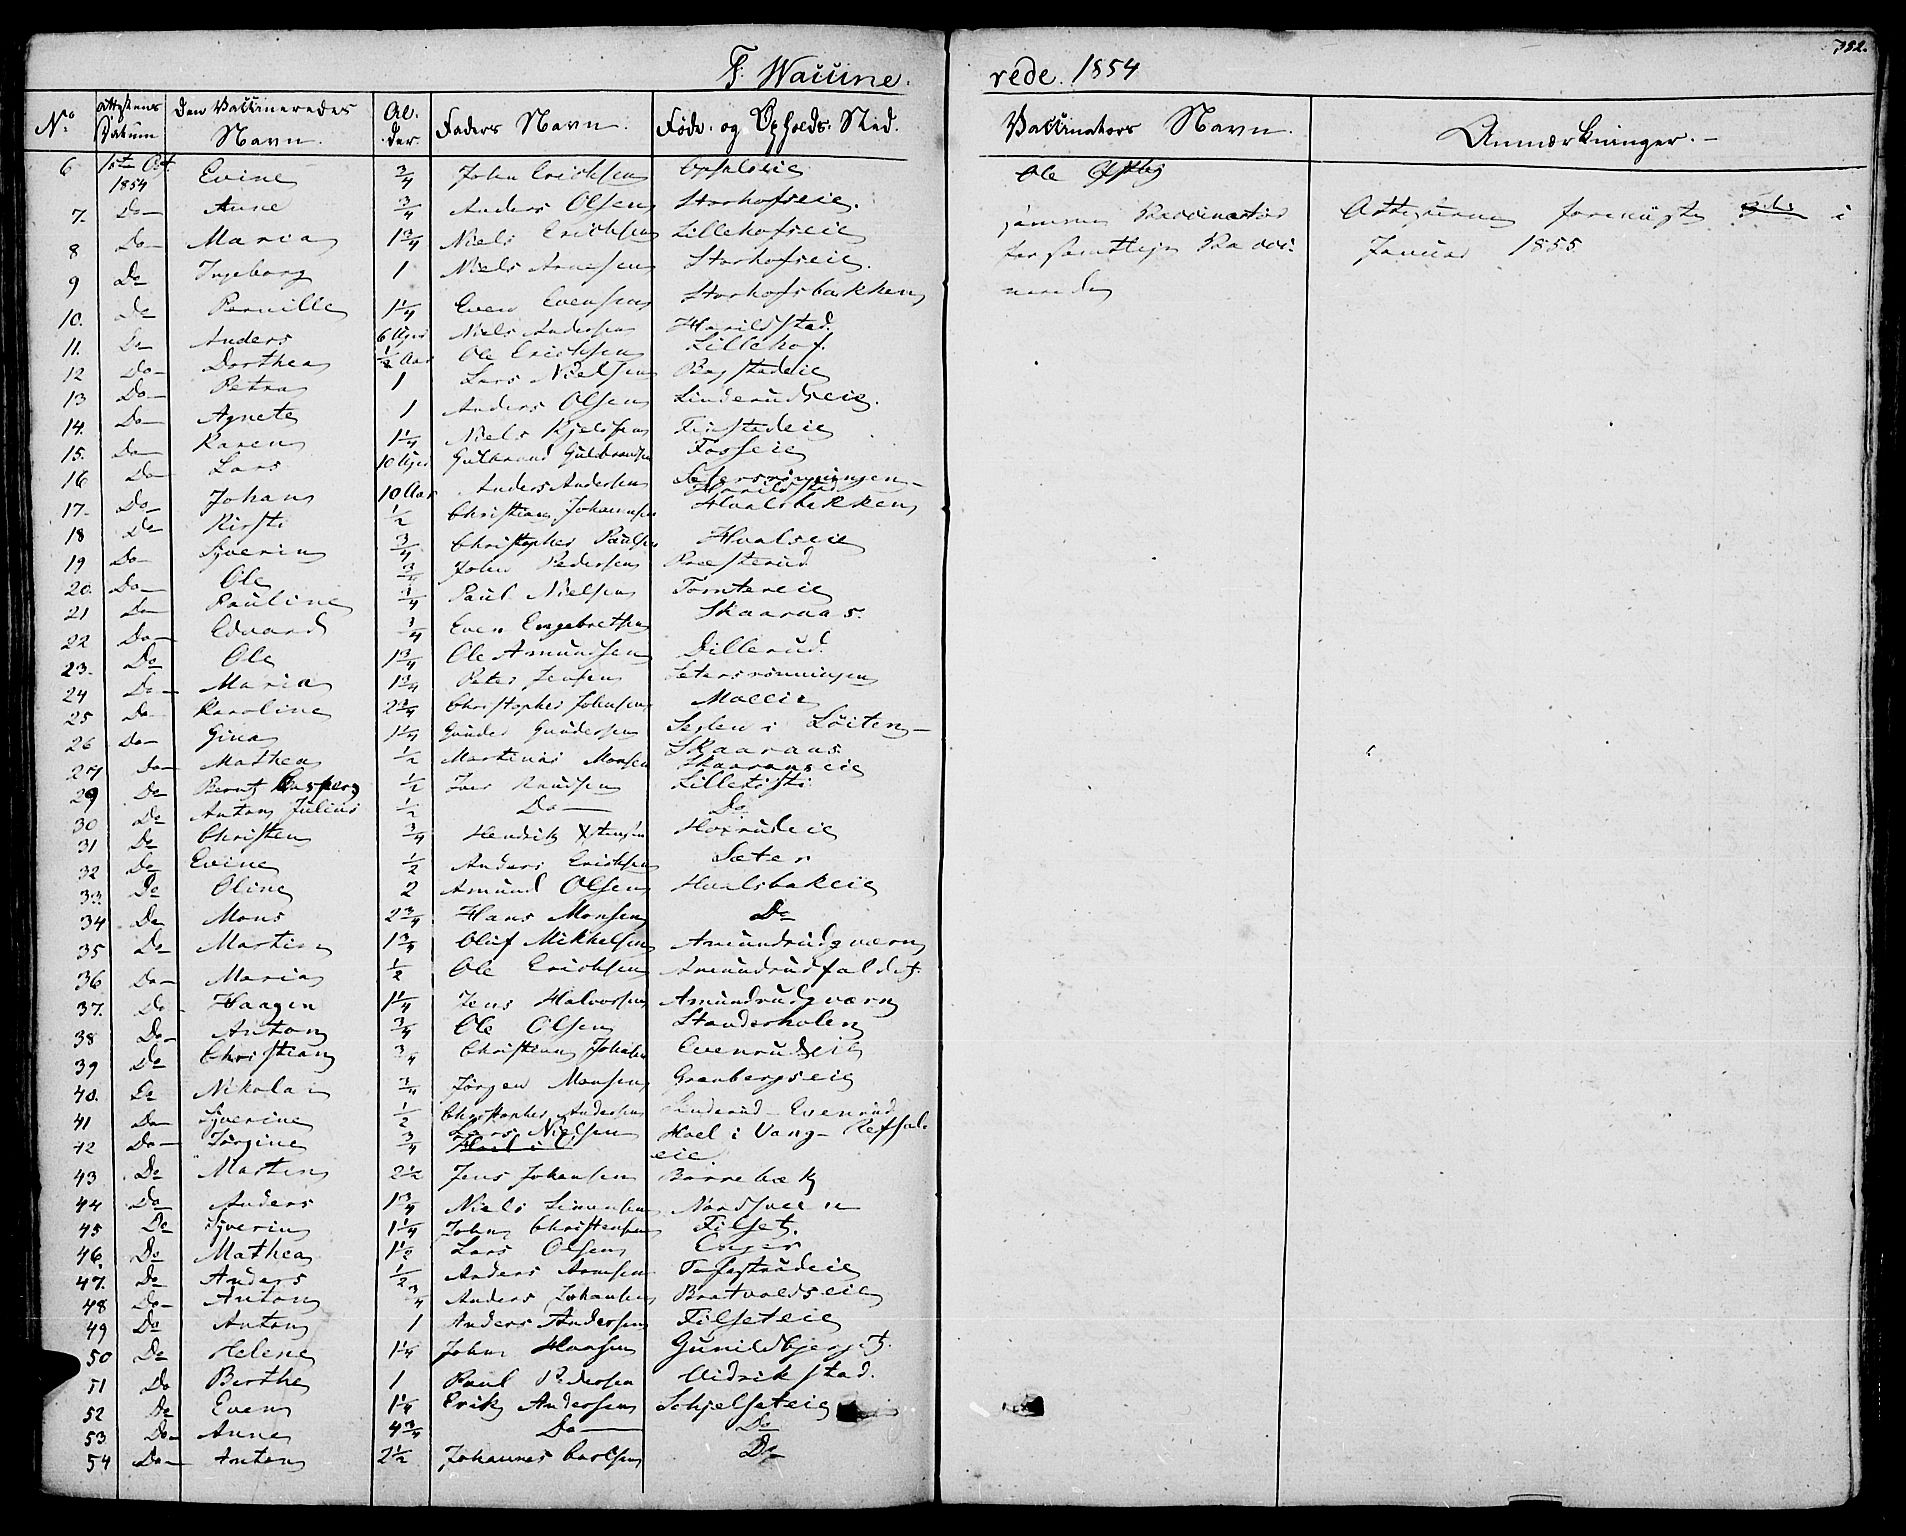 F. Waccine.
rede. 1854
352.
No. Attestens Datum Den Vaccineredes Navn. Alder. Faders Navn. Føde- og Opholds-Sted.
Vaccinators Navn. Anmærkninger.
6 1ste Oct. 1854 Evine 3/4 John Erichsen Opsaleie
7. Do Anne 3/4 Anders Olsen Storhofseie.
8 Do Maria 1 3/4 Niels Erichsen Lillehofseie
9 Do Ingeborg 1 Niels Arnesen Storhofseie.
10. Do Pernille 1 1/4 Even Evensen Storhofsbakken
11. Do Anders 6 Uger Niels Andersen Harildstad.
12 Do Dorthea 1/2 Aar Ole Erichsen Lillehof.
13 Do Petra 1 Lars Nielsen Bagstadeie
14. Do Agnete 1 Anders Olsen Linderudseie.
15. Do Karen 1 1/4 Niels Kjelssen Finstadeie
16 Do Lars 10 Uger Gulbrand Gulbrandsen Fosseie
17. Do Johan 10 Aar Anders Andersen Setersrønningen Harildstad
18 Do Kirsti 1/2 Christian Johannsen Hvalsbakken
19 Do Syverin 3/4 Christopher Paulsen Hvalseie
20. Do Ole 3/4 John Pedersen Præsterud
21 Do Pauline 3/4 Paul Nielsen Tomtereie
22 Do Edvard 3/4 Even Engebretsen Skaaraas.
23. Do Ole 1 3/4 Ole Amundsen Dillerud.
24 Do Maria 1 3/4 Peter Jensen Setersrønningen
25 Do Karoline 2 3/4 Christopher Johnsen Moeeie
26 Do Gina 1 1/4 Gunder Gundersen i Løiten
27 Do Mathea 1/2 Martinus Monsen Skaaraas Skaaraaseie
29 Do Bernt Casper 1/2 Iver Knudsen
30 Do Anton Julius 1/2 Do Do
31 Do Christen 3/4 Hendrik Xstensen
32 Do Evine 1/2 Anders Erichsen Sæter
33. Do Oline 2 Amund Olsen Hvalsbakeie
34 Do Mons 2 3/4 Hans Monsen Do
35 Do Martin 1 3/4 Oluf Mikkelsen Amundrudqværn
36 Do Maria 1/2 Ole Erichsen Amundrudfaldet.
37. Do Haagen 1 1/4 Jens Halvorsen Amundrudqværn
38 Do Anton 3/4 Ole Olsen Standerholen
39 Do Christian 3/4 Christian Johnsen Evenrudeie
40. Do Nikolai 3/4 Jørgen Monsen Granbergseie
41 Do Syverine 1/2 Christopher Andersen Evenrud
42 Do Jørgine 3/4 Lars Nielsen Hoel i Vang Refsaleie
43 Do Martin 2 1/2 Jens Johansen Børrebæk
44 Do Anders 1 3/4 Niels Simensen Nordsveen
45 Do Syverin 1 1/4 John Christensen Filset.
46. Do Mathea 1 1/2 Lars Olsen Enger
47. Do Anders 1/2 Anders Arnesen
48 Do Anton 3/4 Anders Johansen Bratvoldseie
49 Do Anton 1 Anders Andersen Filseteie
50 Do Helene 1 1/4 John Hansen Gunildbjerget.
51 Do Berthe 1 Paul Pedersen Didrikstad.
52 Do Even 1 1/4 Erik Andersen Schjelseteie
53 Do Anne 4 3/4 Do Do
54 Do Anton 2 1/2 Johannes Carlsen Do
Ole Østby
samme Vaccinatør
for samtlige Vacci-
nerede
Attesterne i
Januar 1855